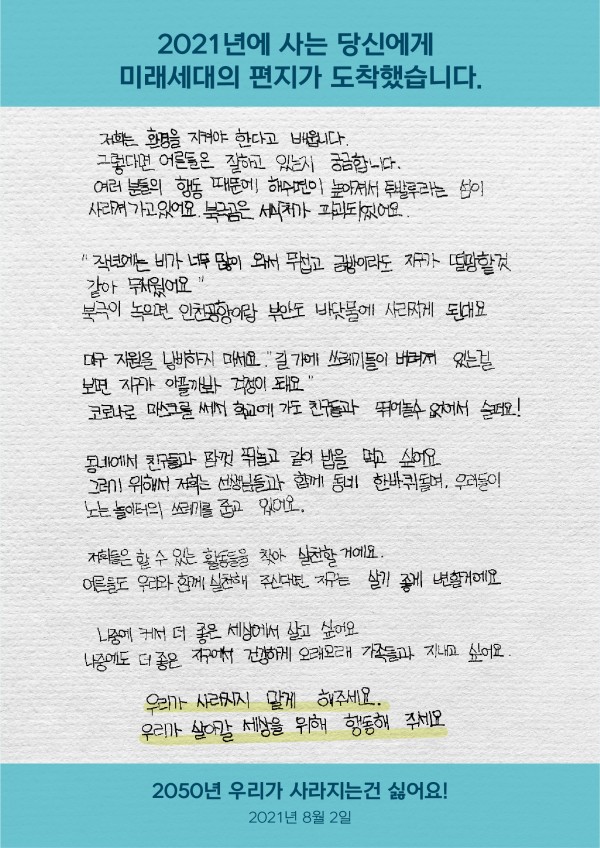 2021년에 사는 당신에게
미래세대의 편지가 도착했습니다.
저희는 환경을 지켜야 한다고 배웁니다.
그렇다면 어른들은 잘하고 있는지 궁금합니다.
여러 분들의 행동 때문에 해수면이 높아져서 투발루라는 섬이
사라져 가고있어요. 북극곰은 서식처가 파괴되었어요.
"작년에는 비가 너무 많이 와서 무섭고 금방이라도 지구가 멸망할것
같아 무서웠어요"
북극이 녹으면 인천공항이랑 부안도 바닷물에 사라지게 된대요
마구 자원을 낭비하지 마세요. "길 가에 쓰레기들이 버려져 있는걸
보면 지구가 아플까봐 걱정이 돼요"
코로나로 마스크를 써서 학교에 가도 친구들과 뛰어놀수 없어서 슬퍼요!
동네에서 친구들과 맘껏 뛰놀고 같이 밥을 먹고 싶어요
그러기 위해서 저희는 선생님들과 함께 동네 한바퀴돌며, 우리들이
노는 놀이터의 쓰레기를 줍고 있어요.
저희들은 할 수 있는 활동들을 찾아 실천할거예요.
어른들도 우리와 함께 실천해 주신다면 지구는 살기 좋게 변할거예요
나중에 커서 더 좋은 세상에서 살고 싶어요
나중에도 더 좋은 지구에서 건강하게 오래오래 가족들과 지내고 싶어요.
우리가 사라지지 않게 해주세요.
우리가 살아갈 세상을 위해 행동해 주세요
2050년 우리가 사라지는건 싫어요!
2021년 8월 2일